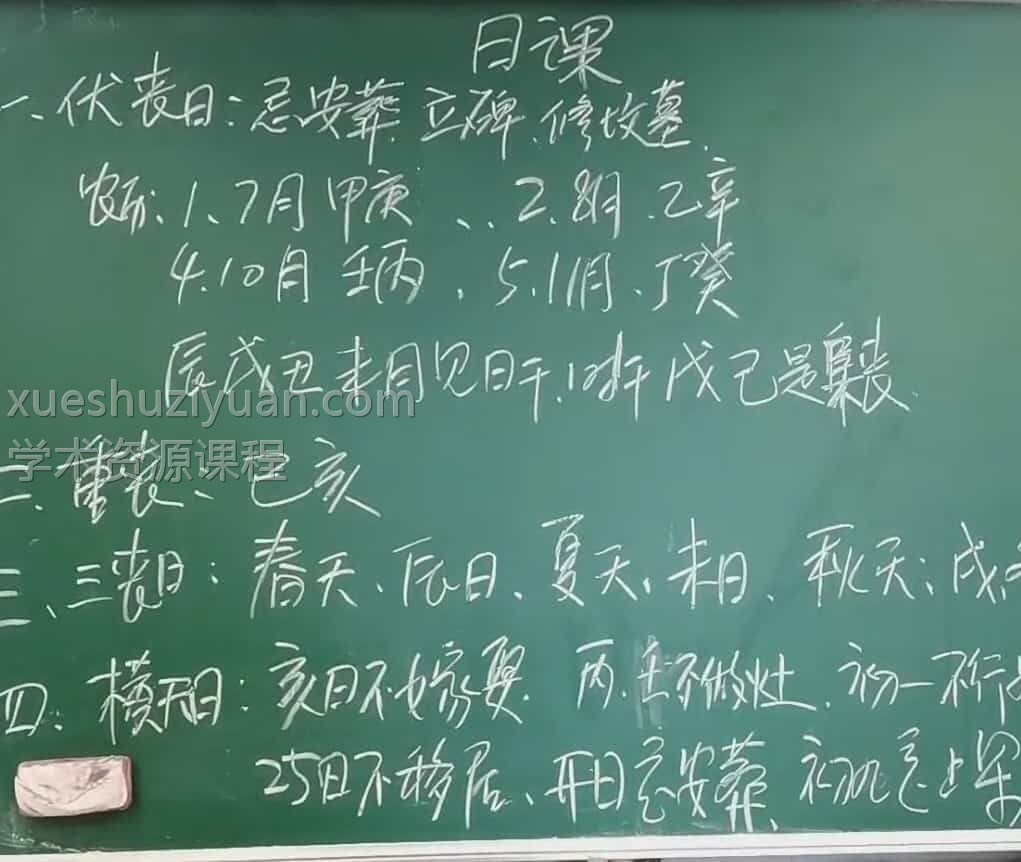 日课
一、伏丧日：忌安葬、立碑、修坟墓、
农历、1、7月甲庚、、2、8月、乙辛
4、10月壬丙、5、11月、丁癸
辰戌丑未月见日干、时干戊己是
xueshuziyuan.com
学术资源课程
二、重丧：巳亥
三、三丧日：春天、辰日、夏天、未日、秋天、戌、
四、横天日：亥日不嫁娶 丙、壬不做灶、初一不行
25日不移居、开日忌安葬、初九忌上梁